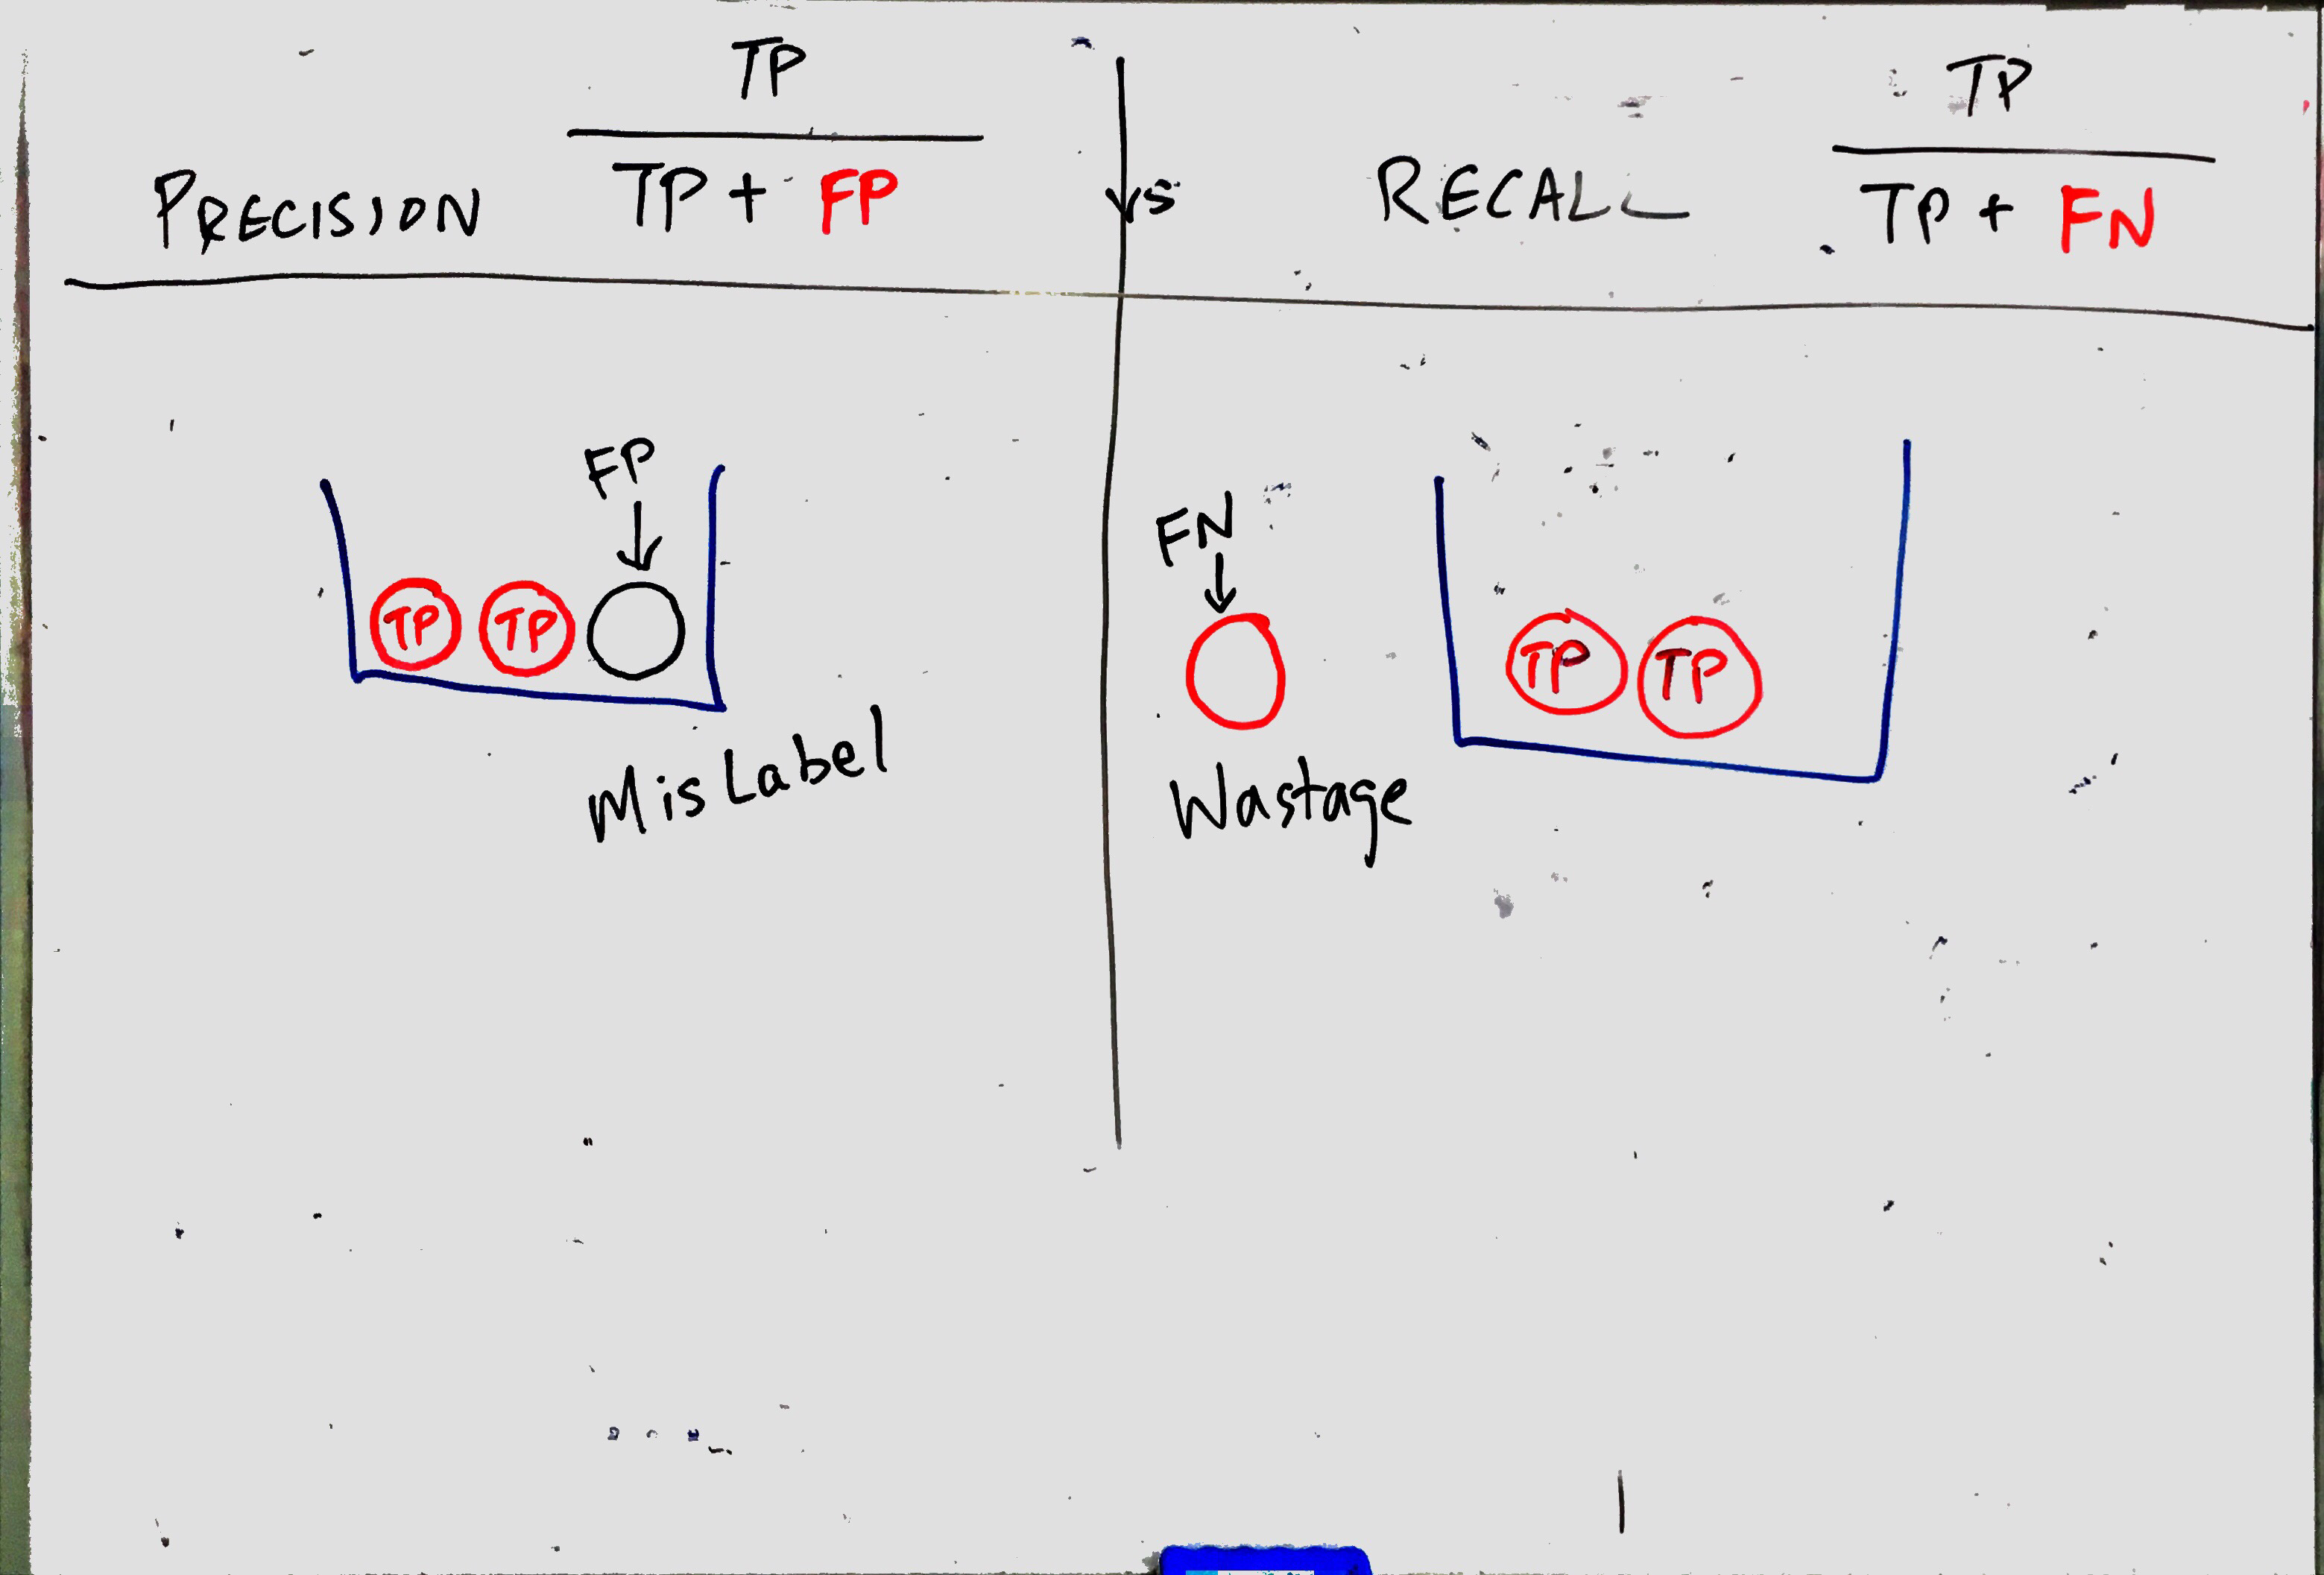 PRECISION
TP
TP + FP
vs
RECALL
TP
TP + FN
FP
TP TP
MisLabel
FN
TP TP
Wastage